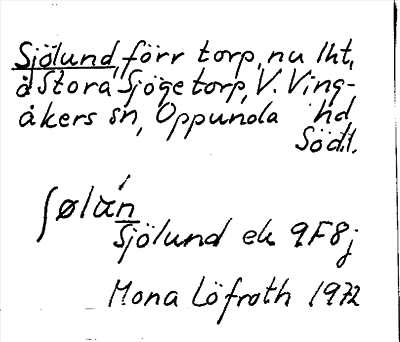 Sjölund, förr torp, nu lht,
å Stora Sjögetorp, V. Ving-
åkers sn, Oppunda hd,
Södl.
ʃølán
Sjölund ek 9F8j
Mona Löfroth 1972